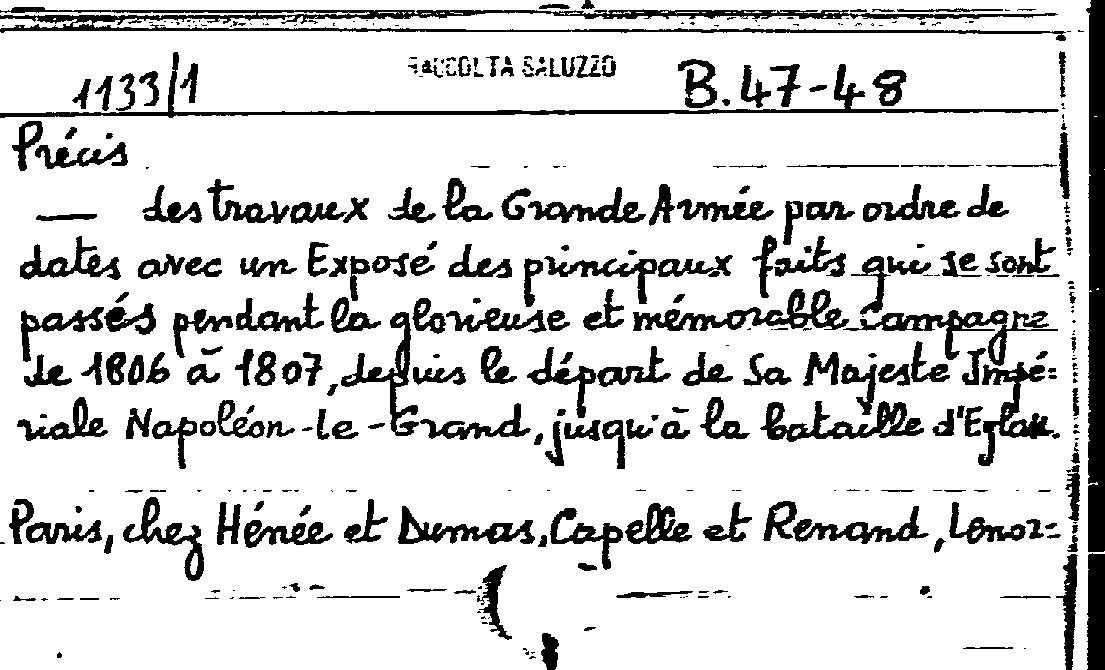 1133/1 RACCOLTA SALUZZO B.47-48
Précis
— des travaux de la Grande Armée par ordre de
dates avec un Exposé des principaux faits qui se sont
passés pendant la glorieuse et mémorable Campagne
de 1806 à 1807, depuis le départ de Sa Majeste Impé=
riale Napoléon-le-Grand, jusqu'à la bataille d'Eylau.
Paris, chez Hénée et Dumas, Capelle et Renand, Lenor=